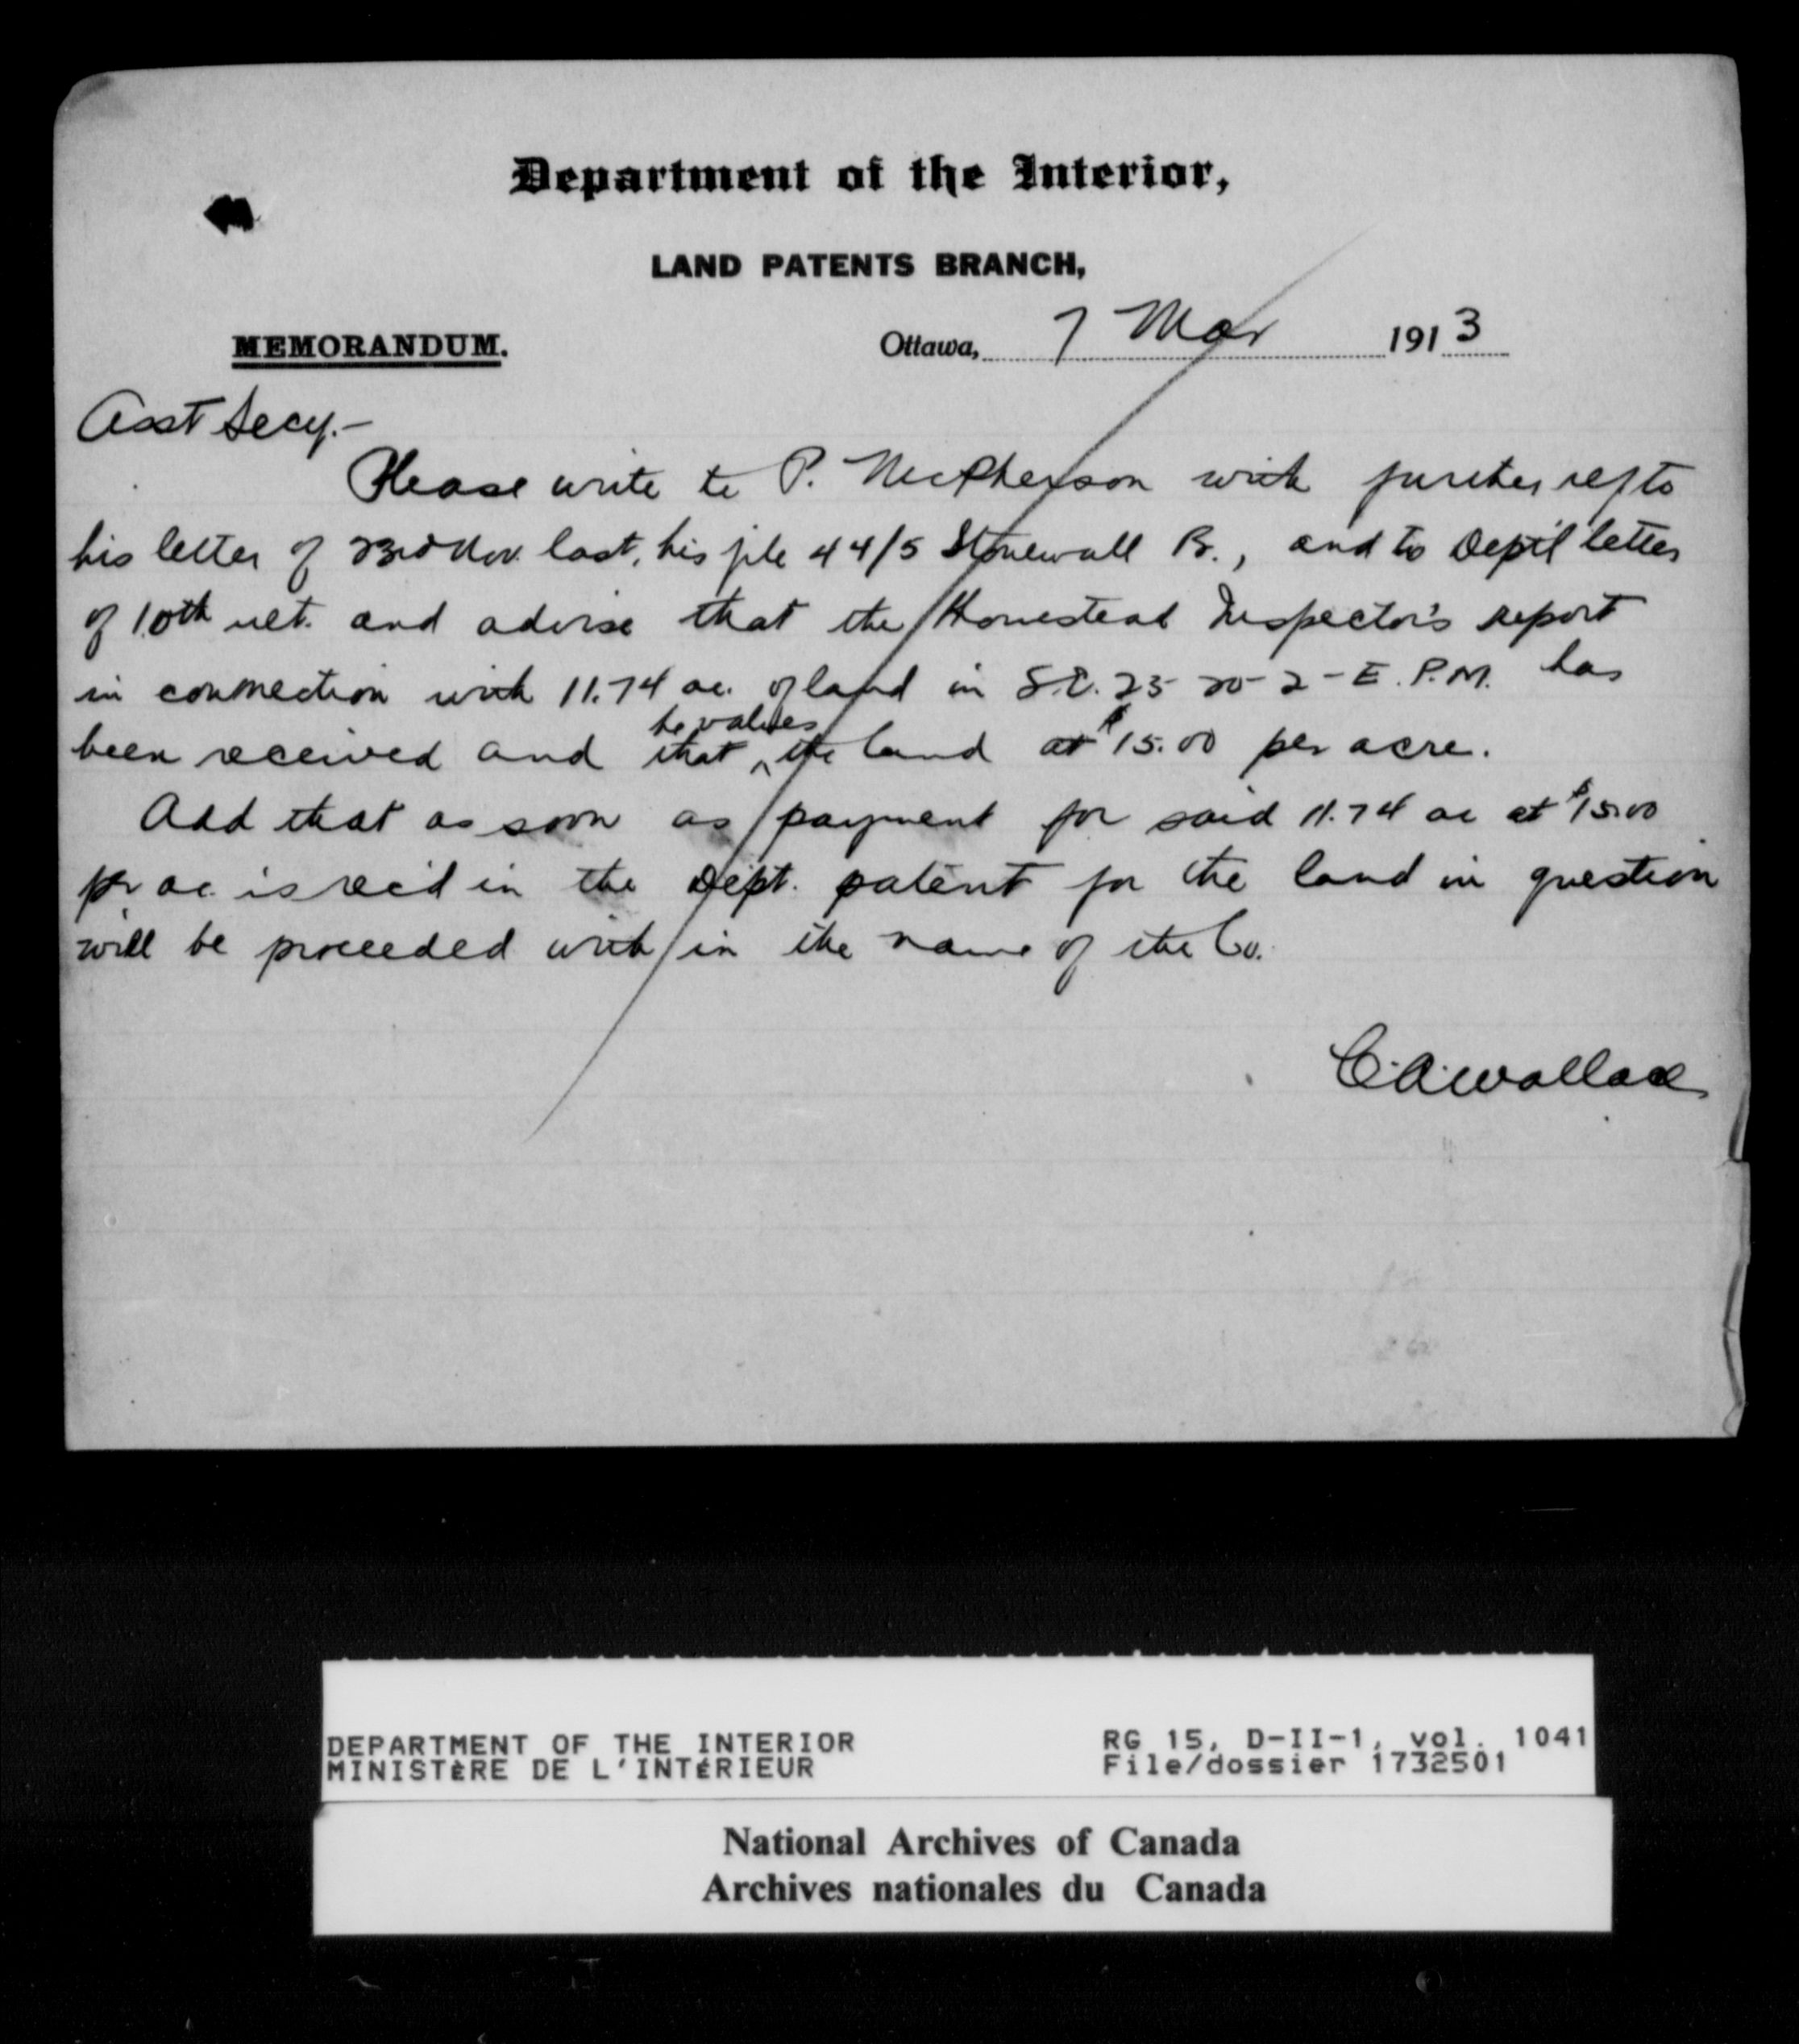 Department of the Interior,
LAND PATENTS BRANCH,
MEMORANDUM. Ottawa, 7 Mar 1913
Asst Secy.-
Please write to P. McPherson with further ref to
his letter of 23rd Nov. last, his file 44/5 Stonewall B., and to Deptl letter
of 10th ult. and advise that the Homestead Inspector's report
in connection with 11.74 ac. of land in S.E. 23-20-2-E. P.M. has
been received and that he values the land at $15.00 per acre.
Add that as soon as payment for said 11.74 ac at $15.00
pr ac. is rec'd in the Dept. patent for the land in question
will be proceeded with in the name of the Co.
C.A. Wallace
DEPARTMENT OF THE INTERIOR RG 15, D-II-1, vol. 1041
MINISTÈRE DE L'INTÉRIEUR File/dossier 1732501
National Archives of Canada
Archives nationales du Canada